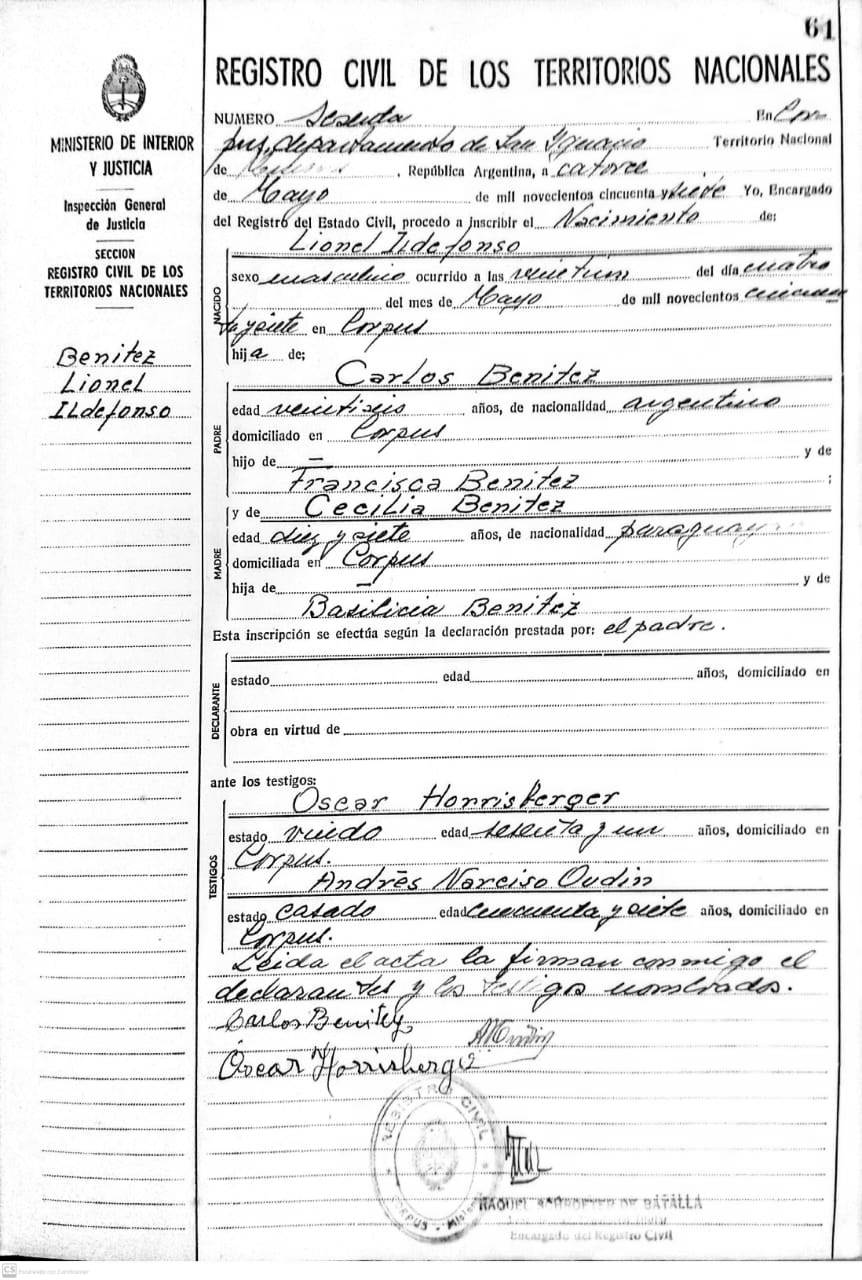 61
MINISTERIO DE INTERIOR
Y JUSTICIA
Inspección General
de Justicia
SECCION
REGISTRO CIVIL DE LOS
TERRITORIOS NACIONALES
Benitez
Lionel
Ildefonso
REGISTRO CIVIL DE LOS TERRITORIOS NACIONALES
NUMERO Sesenta En Cor
pus, departamento de San Ignacio Territorio Nacional
de , República Argentina, a catorce
de Mayo de mil novecientos cincuenta y siete Yo, Encargado
del Registro del Estado Civil, procedo a inscribir el Nacimiento de:
Lionel Ildefonso
NACIDO
sexo masculino ocurrido a las veintiun del día cuatro
del mes de Mayo de mil novecientos cincuen
ta y siete en Corpus
hija de;
Carlos Benitez
PADRE
edad años, de nacionalidad argentino
domiciliado en Corpus
hijo de — y de
Francisca Benitez ;
y de Cecilia Benitez
MADRE
edad diez y siete años, de nacionalidad paraguay
domiciliada en Corpus
hija de — y de
Basilicia Benitez
Esta inscripción se efectúa según la declaración prestada por: el padre.
DECLARANTE
estado edad años, domiciliado en
obra en virtud de
ante los testigos:
TESTIGOS
Oscar Horrisberger
estado viudo edad sesenta y un años, domiciliado en
Corpus.
Andrés Narciso Oudin
estado casado edad cincuenta y siete años, domiciliado en
Corpus.
Leida el acta la firman conmigo el
declarante y los testigos nombrados.
Carlos Benitez
Oscar Horrisberger
REGISTRO CIVIL
CORPUS - Misiones
RAQUEL SCHROEYER DE BATALLA
Encargado del Registro Civil
CS Escaneado con CamScanner